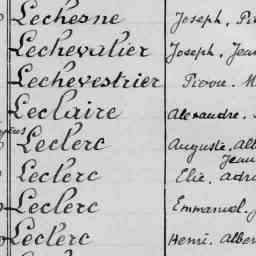 Lechesne Joseph,
Lechevalier Joseph, Jean
Lechevestrier Pierre. M
Leclaire Alexandre.
Leclerc Auguste, Alb
Jean
Leclerc Elie. Adri
Leclerc Emmanuel.
Leclerc Henri. Alber